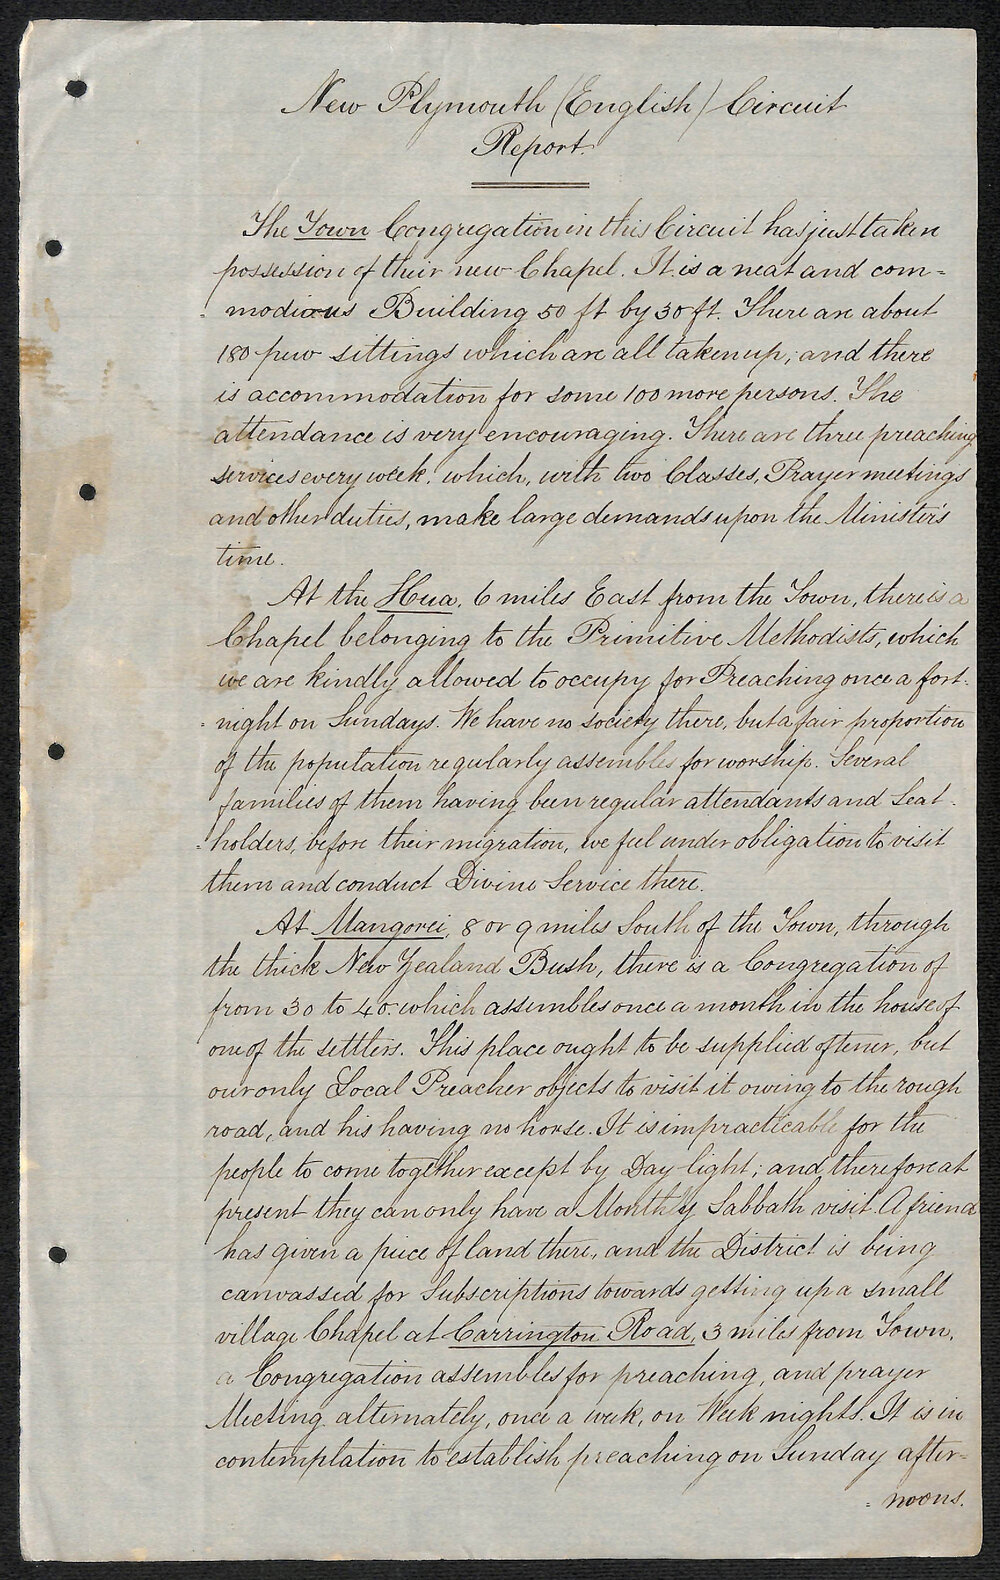 New Plymouth (English) Circuit
Report.
The Town Congregation in this Circuit has just taken
possession of their new Chapel. It is a neat and com=
modious Building 50 ft by 30 ft. There are about
180 pew sittings which are all taken up, and there
is accommodation for some 100 more persons. The
attendance is very encouraging. There are three preaching
services every week, which, with two Classes, Prayer meetings
and other duties, make large demands upon the Minister's
time.
At the Hua, 6 miles East from the Town, there is a
Chapel belonging to the Primitive Methodists, which
we are kindly allowed to occupy for Preaching once a fort-
night on Sundays. We have no society there, but a fair proportion
of the population regularly assembles for worship. Several
families of them having been regular attendants and Seat-
=holders, before their migration, we feel under obligation to visit
them and conduct Divine Service there.
At Mangorei, 8 or 9 miles South of the Town, through
the thick New Zealand Bush, there is a Congregation of
from 30 to 40. which assembles once a month in the house of
one of the settlers. This place ought to be supplied oftener, but
our only Local Preacher objects to visit it owing to the rough
road, and his having no horse. It is impracticable for the
people to come together except by Day light; and therefore at
present they can only have a Monthly Sabbath visit. A friend
has given a piece of land there, and the District is being
canvassed for Subscriptions towards getting up a small
village Chapel at Carrington Road, 3 miles from Town,
a Congregation assembles for preaching, and prayer
Meeting alternately, once a week, on Week nights. It is in
contemplation to establish preaching on Sunday after-
=noons.